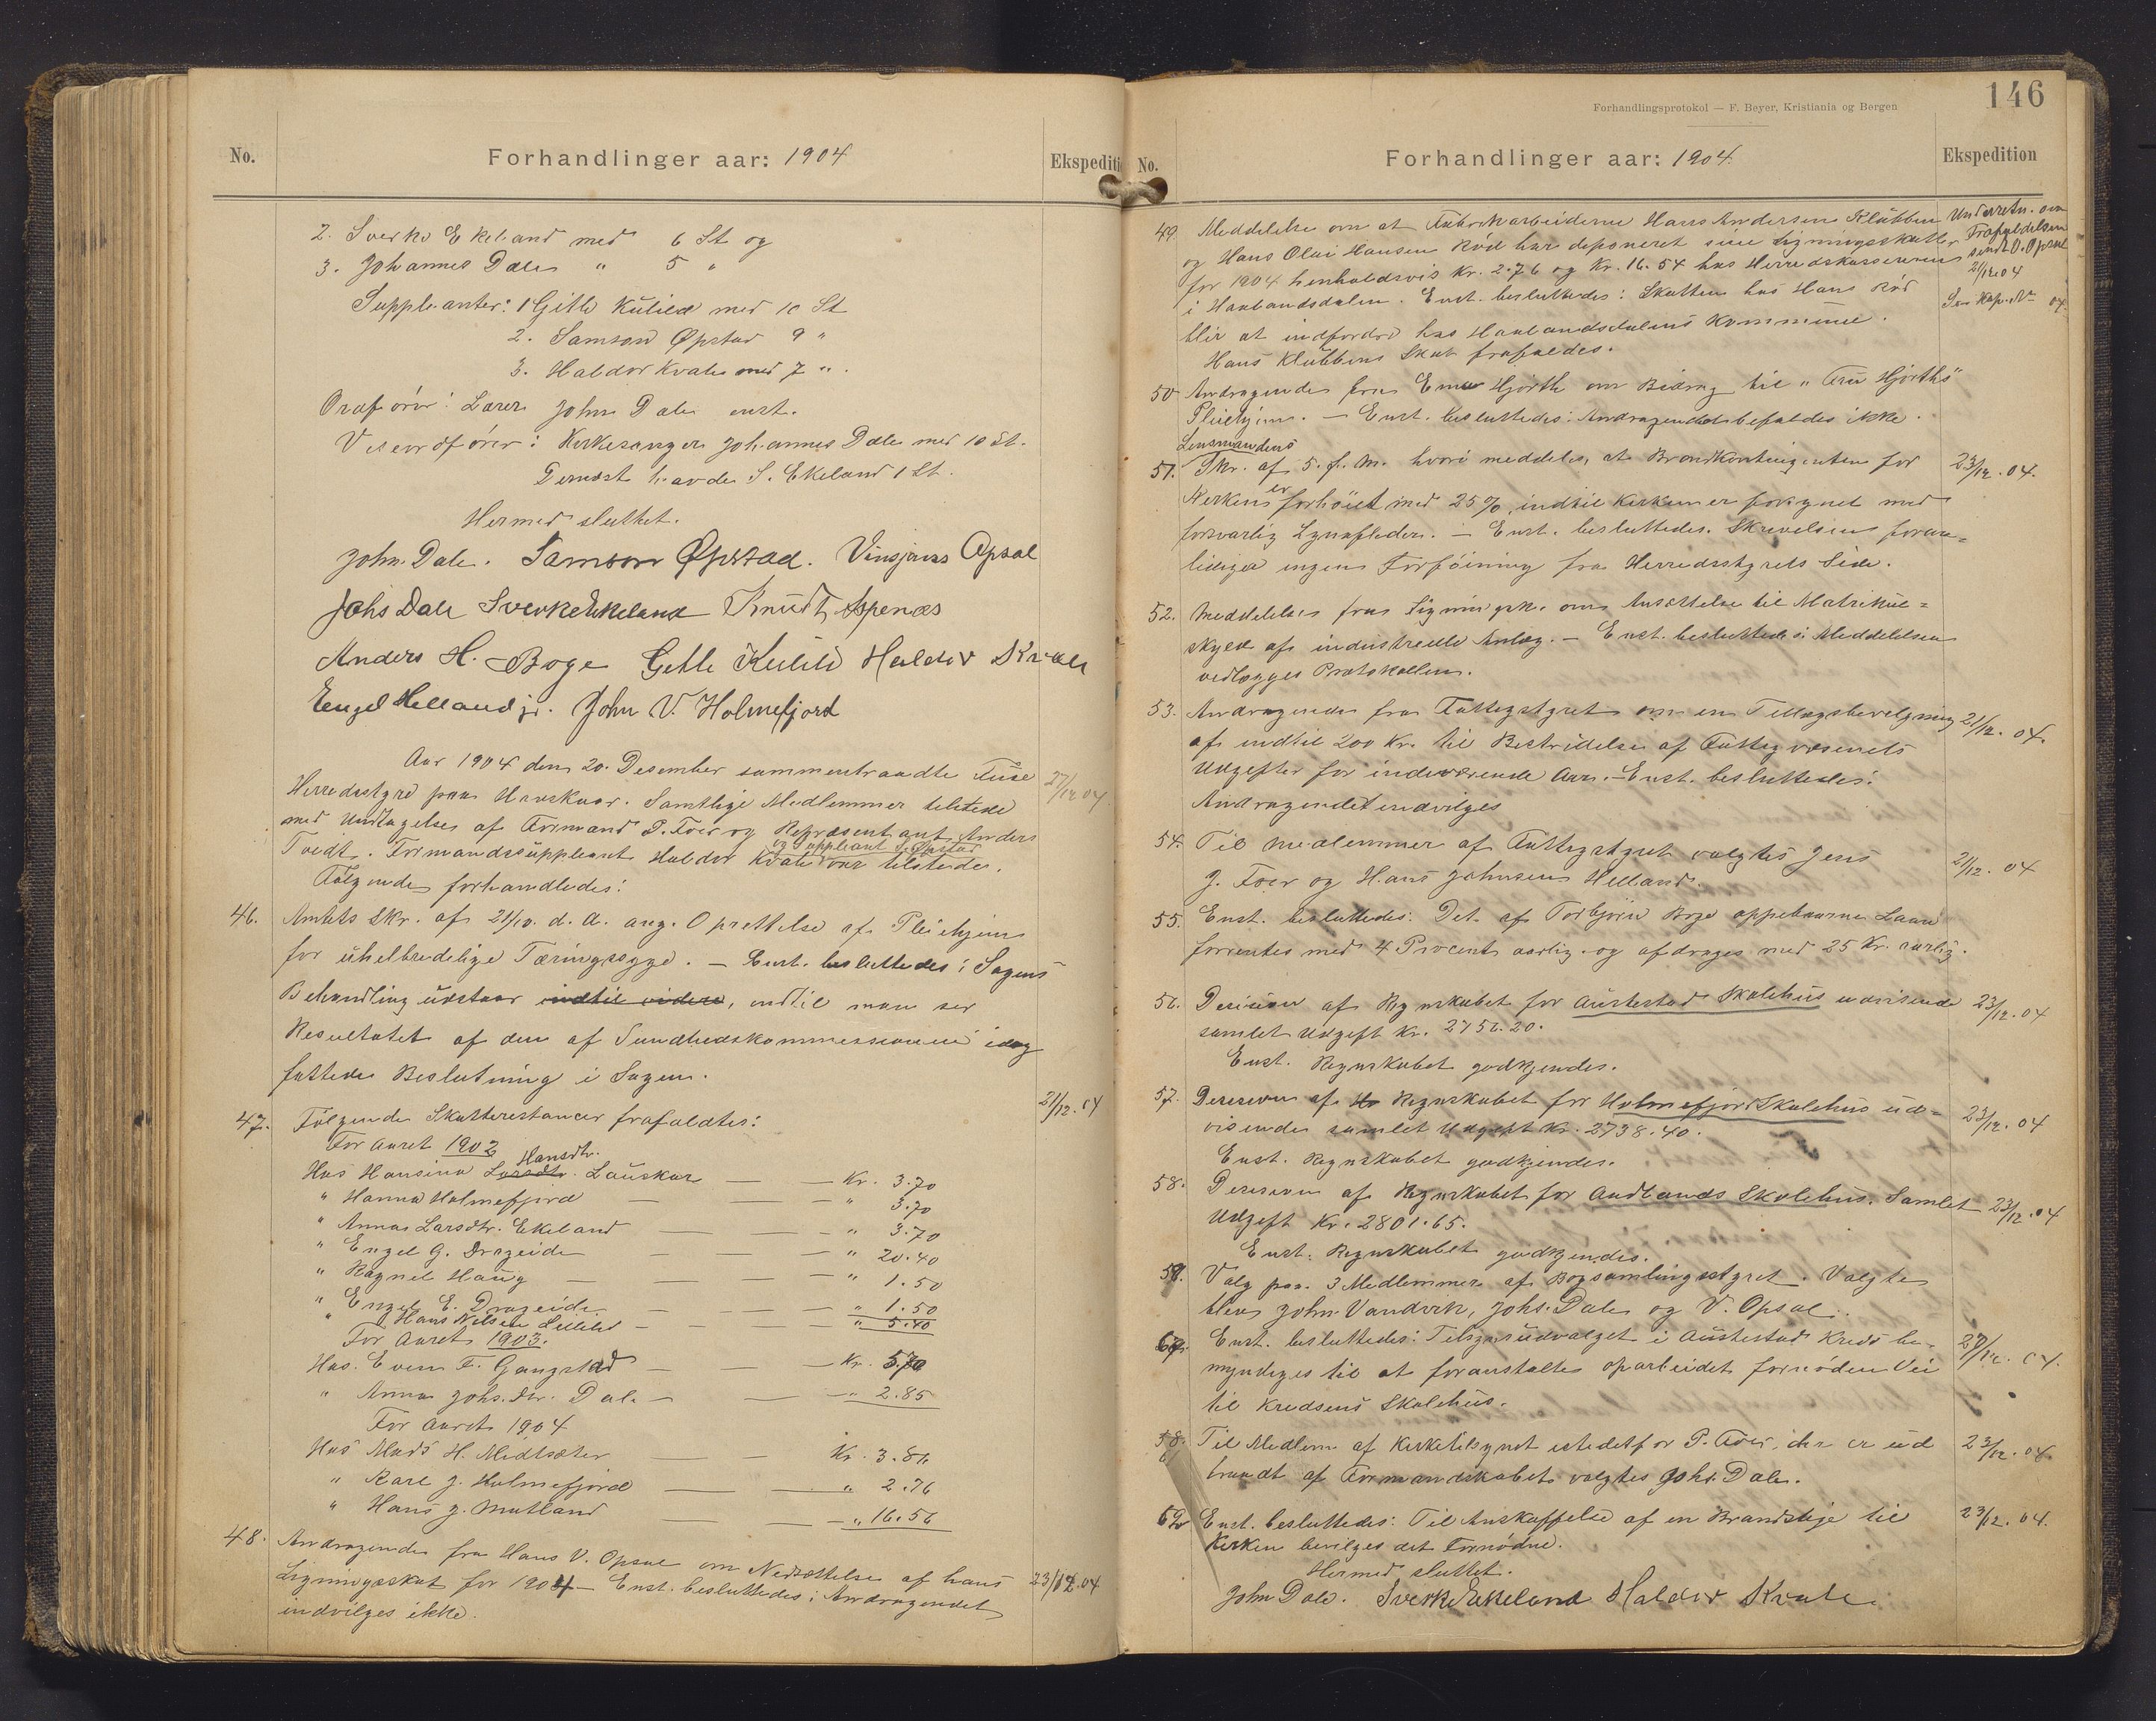 No.
Forhandlinger aar: 1904
Ekspediti
2. Sverke Ekeland med 6 St og
3. Johannes Dale " 5 "
Suppleanter: 1 Gitle Kulild med 10 St
2. Samson Øpstad 9 "
3. Haldor Kvale med 7 ".
Ordfører: Lærer John Dale enst.
Viseordfører: Kirkesanger Johannes Dale med 10 St.
Dernæst havde S. Ekeland 1 St.
Hermed sluttet.
John Dale. Samson Øpstad. Vinsjans Opsal
Johs Dale Sverke Ekeland Knudt Aspenæs
Anders H. Boge Gitle Kulild Haldor Kvale
Engel Helland jr. John V. Holmefjord
Aar 1904 den 20. Desember sammentraadte Fuse 27/12 04
Herredsstyre paa Havskaar. Samtlige Medlemmer tilstede
med Undtagelse af Formand P. Foer og Repræsentant Anders
Tveidt. Formandssuppleant Haldor Kvale og Suppleant S. Øpstad var tilstede.
Følgende forhandledes:
46. Amtets Skr. af 21/10. d. A. ang. Oprettelse af Pleiehjem
for uhelbredelige Tæringssyge. – Enst. besluttedes: Sagens
Behandling udstaar indtil videre, indtil man ser
Resultatet af den af Sundhedskommissionen idag
fattede Beslutning i Sagen.
47. Følgende Skatterestancer frafaldtes: 21/12. 04
For Aaret 1902
Hos Hansina Larsdtr. Hansdtr. Lauskar — — Kr. 3.70
" Hanna Holmefjord — — " 3.70
" Anna Larsdtr. Ekeland — — " 3.70
" Engel G. Drageide — — " 20.40
" Ragnel Haug — — — " 1.50
" Engel E. Drageide — — — " 1.50
" Hans Nilsen — — — " 5.40
For Aaret 1903.
Hos Even F. Gangstad — — Kr. 5.70
" Anna Johs.dtr. Dale — — — " 2.85
For Aaret 1904
Hos Mads H. Midtsæter — — Kr. 3.86
" Karl J. Holmefjord — — " 2.76
" Hans J. Mutland — — " 16.56
48. Andragende fra Hans V. Opsal om Nedsættelse af hans
Ligningsskat for 1904 – Enst. besluttedes: Andragendet 23/12.04
indvilges ikke.
146
Forhandlingsprotokol — F. Beyer, Kristiania og Bergen
No.
Forhandlinger aar: 1904.
Ekspedition
49. Meddelelse om at Fabrikarbeiderne Hans Andersen Klubben Underretn. om
og Hans Olai Hansen Rød har deponeret sine Ligningsskatter Frafaldelsen
for 1904 henholdsvis Kr. 2.76 og Kr. 16.54 hos Herredskassereren sendt O. Opsal
i Haalandsdalen. Enst. besluttedes: Skatten hos Hans Rød 21/12.04
blir at indfordre hos Haalandsdalens Kommune. Se Kop. No 04.
Hans Klubbens Skat frafaldes.
50 Andragende fra Ema Hjorth om Bidrag til "Fru Hjorths"
Pleiehjem. – Enst. besluttedes: Andragendet befaldes ikke.
Lensmandens
51. Skr. af 5. f. M. hvori meddeles, at Brandkontingenten for 23/12. 04.
Kirken er forhøiet med 25 %, indtil Kirken er forsynet med
forsvarlig Lynafleder. – Enst. besluttedes. Skrivelsen foran=
lediger ingen Forføining fra Herredsstyrets Side.
52. Meddelelse fra Ligningsk. om Ansættelse til Matrikul=
skyld af industrielle Anlæg. – Enst. besluttedes: Meddelelsen
vedlægges Protokollen.
53. Andragende fra Fattigstyret om en Tillægsbevilgning 21/12. 04.
af indtil 200 Kr. til Bestridelse af Fattigvæsenets
Udgifter for indeværende Aar. – Enst. besluttedes:
Andragendet indvilges
54. Til Medlemmer af Fattigstyret valgtes Jens
J. Foer og Hans Johnsen Helland. 21/12. 04
55. Enst. besluttedes: Det af Torbjørn Boge oppebaarne Laan
forrentes med 4 Procent aarlig og afdrages med 25 Kr. aarlig.
56. Desision af Regnskabet for Austestad Skolehus udvisende 23/12.04
samlet Udgift Kr. 2756.20.
Enst. Regnskabet godkjendes.
57. Desision af Regnskabet for Holmefjord Skolehus ud= 23/12. 04
visende samlet Udgift Kr. 2738.40.
Enst. Regnskabet godkjendes.
58. Desision af Regnskabet for Audlands Skolehus. Samlet 23/12.04
Udgift Kr. 2801.65.
Enst. Regnskabet godkjendes.
59. Valg paa 3 Medlemmer af Bogsamlingsstyret. Valgte
blev John Vandvik, Johs. Dale og V. Opsal.
60. Enst. besluttedes: Tilsynsudvalget i Austestad Kreds be- 27/12. 04.
myndiges til at foranstalte oparbeidet fornøden Vei
til Kredsens Skolehus.
Til Medlem af Kirketilsynet istedetfor P. Foer, der er ud 23/12. 04.
traadt af Formandskabet valgtes Johs. Dale.
62 Enst. besluttedes: Til Anskaffelse af en Brandstige til 23/12. 04.
Kirken bevilges det Fornødne.
Hermed sluttet.
John Dale. Sverke Ekeland Haldor Kvale